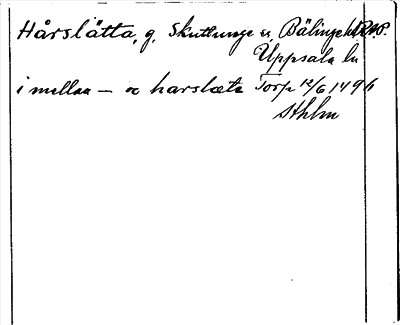 Hårslätta, g. Skuttunge sn, Bälinge hd RAP.
Uppsala län
i mellan – oc harslæta Torp 12/6 1496
Sthlm